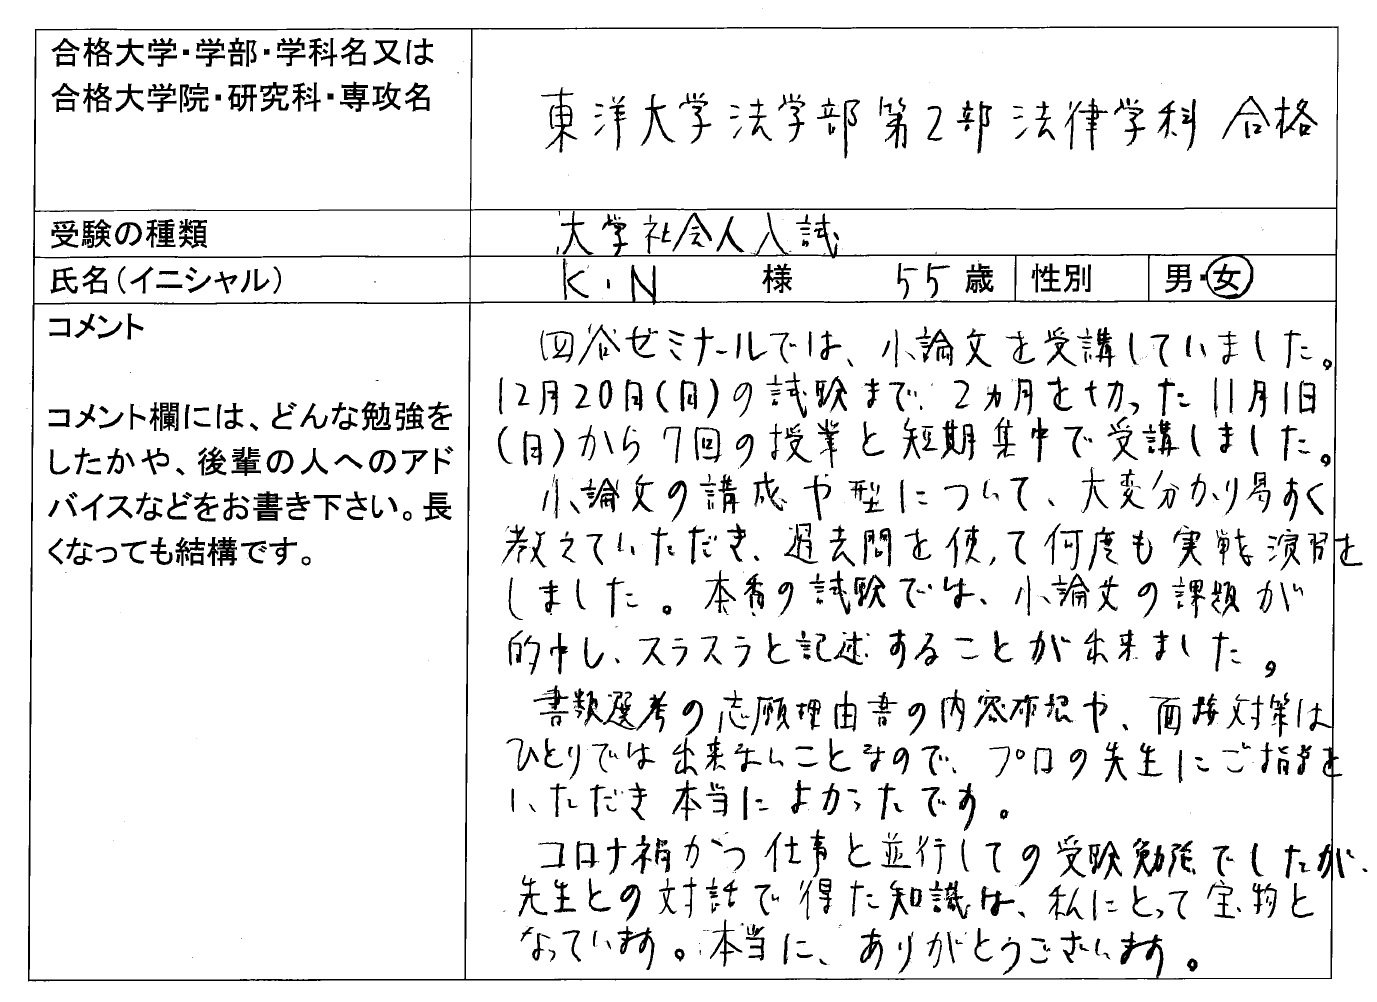 合格大学・学部・学科名又は
合格大学院・研究科・専攻名
東洋大学法学部第2部法律学科 合格
受験の種類
大学社会人入試
氏名(イニシャル)
K.N 様 55歳 性別 男・女
コメント
コメント欄には、どんな勉強を
したかや、後輩の人へのアド
バイスなどをお書き下さい。長
くなっても結構です。
四谷ゼミナールでは、小論文を受講していました。
12月20日(日)の試験まで、2ヵ月を切った11月1日
(日)から7回の授業と短期集中で受講しました。
小論文の講成や型について、大変分かり易く
教えていただき、過去問を使って何度も実戦演習を
しました。本番の試験では、小論文の課題が
的中し、スラスラと記述することが出来ました。
書類選考の志願理由書の内容確認や、面接対策は
ひとりでは出来ないことなので、プロの先生にご指導を
いただき本当によかったです。
コロナ禍かつ仕事と並行しての受験勉強でしたが、
先生との対話で得た知識は、私にとって宝物と
なっています。本当に、ありがとうございます。